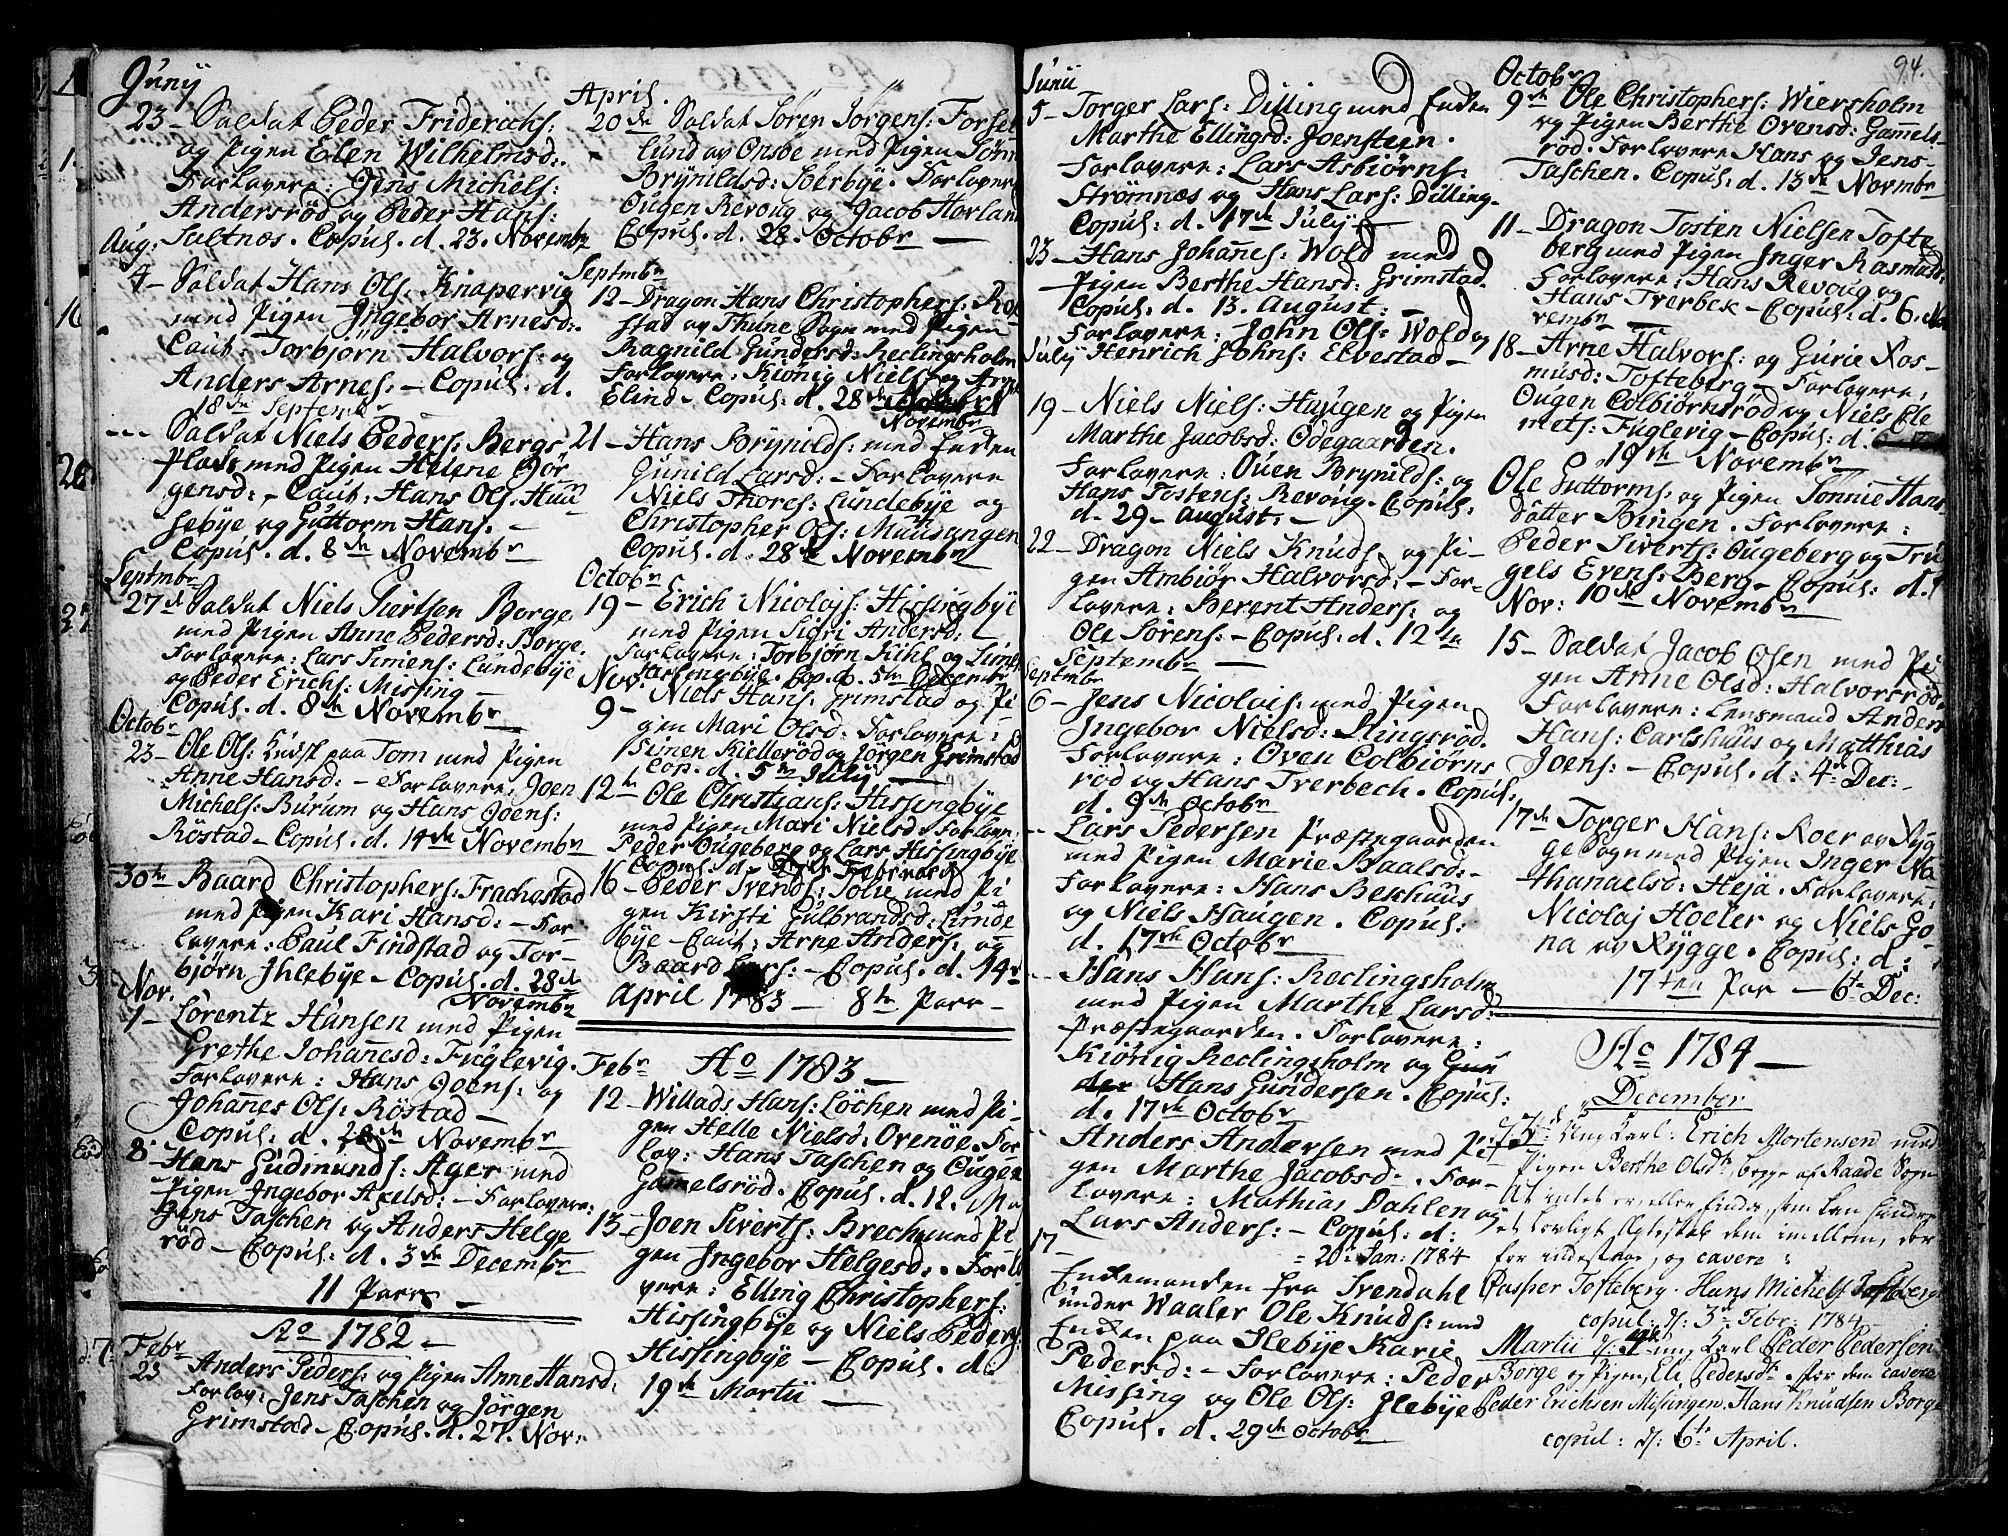 Junij
23 – Saldat Peder Friderichs:
og Pigen Elen Wilhelmsd:.
Forlovere: Jens Michels:
Andersröd og Peder Hans:
Saltnæs. Copul. d. 23. Novembr
Aug:
4 – Saldat Hans Ols: Knapervig
med Pigen Ingebor Arnesd:.
Caut: Torbjörn Halvors: og
Anders Arnes: – Copul. d.
18de Septembr
--- Saldat Niels Peders: Bergs
Plads med Pigen Helene Jör
gensd: – Caut: Hans Ols. Huu
sebye og Guttorm Hans: –
Copul. d. 8de Novembr
Septmbr
27de Saldat Niels Siertsen Borge
med Pigen Anne Pedersd: Borge.
Forlovere: Lars Simens: Lundebye
og Peder Erichs: Missing –
Copul. d. 8de Novembr
Octobr
23 – Ole Ols: paa Tom med Pigen
Anne Hansd: – Forlovere: Joen
Michels: Burum og Hans Joens:
Röstad – Copul. d. 14de Novembr
30te Baard Christophers: Frachestad
med Pigen Kari Hansd: – For-
lovere: Paul Findstad og Tor-
björn Ihlebye – Copul. d. 28de
Novembr
Nov.
1 – Lorentz Hansen med Pigen
Grethe Johañesd: Fuglevig.
Forlovere: Hans Joens: og
Johañes Ols: Röstad –
Copul: d. 28de Novembr
8 – Hans Gudmunds: Ager med
Pigen Ingebor Axelsd: – Forlovere:
Jens Taschen og Anders Helge
röd – Copul: d. 3de Decembr
11 Parr –
Ao 1782 –
Febr
23 Anders Peders: og Pigen Anne Hansd:
Forlov: Jens Taschen og Jörgen
Grimstad – Copul. d. 27. Nov:
April.
20de Saldat Sören Jörgens: Forse
lund av Onsöe med Pigen Sönn
Brynildsd: Borbye. Forlovere
Ougen Revoug og Jacob Horland
Copul. d. 28. Octobr –
Septmbr
12 – Dragon Hans Christophers: Ro
stad av Thune Sogn med Pigen
Ragnild Gundersd: Reclingsholm
Forlovere: Kiönig Niels: og Arne
Elind – Copul: d. 28de
Novembr
21 – Hans Brynilds: med Enken
Gunild Larsd: – Forlovere
Niels Thores: Lundebye og
Christopher Ols: Mausangen
Copul. d. 28de Novembr
Octobr
19 – Erich Nicolajs: Hissingbye
med Pigen Sigri Andersd:
Forlovere: Torbjörn Kihl og Simen
Hissingbye. Cop. d. 5te Decembr
Nov.
9 – Niels Hans: Grimstad og Pi
gen Mari Olsd: Forlovere:
Simen Kielleröd og Jörgen Grimstad
Cop. d. 5te July –
12te Ole Christians: Hissingbye
med Pigen Mari Nielsd: Forlov:
Peder Ougeberg og Lars Hissingbye
Copul. d. Februarij
16 – Peder Svends: Solie med Pi
gen Kirsti Gulbrandsd: Lunde
bye – Caut: Arne Anders: og
Baard Lars: – Copul. d. 14
April 1783 – 8te Parr –
Ao 1783 –
Febr
12 – Willads Hans: Löchen med Pi-
gen Helle Nielsd: Ovenöe. For
lov: Hans Taschen og Ougen
Gamelsröd. Copul. d. 12.
13 – Joen Siverts: Brech med Pi
gen Ingebor Helgesd: Forlo
vere: Elling Christophers:
Hissingbye og Niels Peders:
Hissingbye – Copul. d.
19de Martii –
Junii
5 – Torger Lars: Dilling med Enken
Marthe Ellingsd: Joensteen.
Forlovere: Lars Asbiörns:
Strömnæs og Hans Lars: Dilling.
Copul: d. 17de July –
23 – Hans Johañes: Wold med
Pigen Berthe Hansd: Grimstad
Copul: d. 13. August: –
Forlovere: John Ols: Wold og
Henrich Johns: Elvestad –
July
19 – Niels Niels: Haugen og Pigen
Marthe Jacobsd: Ödegaarden.
Forlovere: Ouen Brynilds: og
Hans Tostens: Revoug. Copul:
d. 29 – August: –
22 – Dragon Niels Knuds: og Pi-
gen Ambiör Halvorsd: – For-
lovere: Berent Anders: og
Ole Sörens: – Copul: d. 12te
Septembr –
Septmbr
6 – Jens Nicolais: med Pigen
Ingebor Nielsd: Slingsröd
Forlovere: Oven Colbiörns
rod og Hans Tverbech. Copul:
d. 9de Octobr
-- Lars Pedersen Præstegaarden
med Pigen Marie Baalsd: –
Forlovere: Hans Bekhuus
og Niels Haugen. Copul:
d. 17de Octobr
-- Hans Hans: Reclingsholm
med Pigen Marthe Larsd:
Præstegaarden. Forlovere:
Kiönig Reclingsholm og Gun
der Hans Gundersen. Copul:
d. 17de Octobr
-- Anders Andersen med Pi-
gen Marthe Jacobsd: For-
lovere: Mathias Dahlen og
Lars Anders: – Copul: d:
= 20: Jan: 1784
17 –
Enkemanden fra Svendahl
under Waaler Ole Knuds: med
Enken paa Ilebye Karie
Pedersd: – Forlovere: Peder
Missing og Ole Ols: Ilebye
Copul. d. 29de Octobr
94.
Octobr
9de Ole Christophers: Wiersholm
og Pigen Berthe Ovensd: Gamels-
röd. Forlovere Hans og Jens-
Taschen. Copul: d. 13de Novmbr
11 – Dragon Tosten Nielsen Tofte
berg med Pigen Inger Rasmusd:
Forlovere: Hans Revoug og
Hans Tverbek – Copul: d. 6. No
vembr –
18 – Arne Halvors: og Gurie Ras-
musd: Tofteberg – Forlovere:
Ougen Colbiörnsröd og Niels Cle
mets: Fuglevig – Copul: d.
19de Novembr
Ole Guttorms: og Pigen Sönnie Hans
datter Bingen. Forlovere:
Peder Siverts: Ougeberg og Tru
gels Evens: Berg – Copul: d.
Nov: 10de Novembr
15 – Saldat Jacob Olsen med Pi
gen Anne Olsd: Halvorsröd
Forlovere: Lensmand Anders
Hans: Carlshuus og Matthias
Joens: – Copul: d: 4de Dec:
17de Torger Hans: Roer av Ryg
ge Sogn med Pigen Inger Na
thanaelsd: Heja. Forlovere:
Nicolaj Hoeler og Niels Go
na av Rygge. Copul: d:
17ten Par – 6te Dec:
Ao 1784 –
December
Ung Karl: Erich Mortensen med
Pigen Berthe Olsdr, begge af Raade Sogn
At intet er, eller findes, som kan hindre
et lovligt Ægteskab dem imellem, der
for indestaae, og cavere:
Casper Tofteberg. Hans Michels: Tofteberg
copul: d: 3de Febr: 1784 –
Martii d: ung Karl Peder Pedersen
Borge og Pigen Eli Pedersdr. For dem cavere
Peder Erichsen Missingen. Hans Knudsen Borge
copul: d: 6te April.